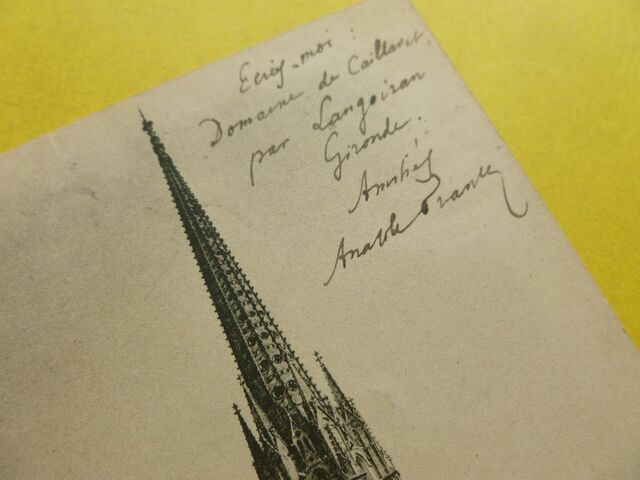 Ecrez-moi :
Domaine de Caillavet,
par Langoiran
Gironde.
Amitiés
Anatole France